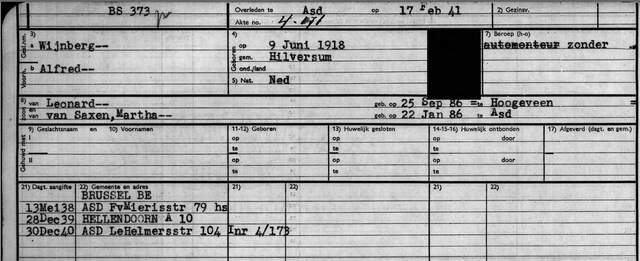 BS 373
Overleden te Asd op 17 Feb 41
Akte no.
2) Gezinsv.
3)
Gesl.nm.
a Wijnberg--
Voorn.
b Alfred--
4) Geboren
op 9 Juni 1918
gem. Hilversum
ond./land
5) Nat. Ned
7) Beroep (h-o)
automonteur zonder
8) van Leonard-- geb. op 25 Sep 86 = te Hoogeveen =
en van Saxen,Martha-- geb. op 22 Jan 86 = te Asd
Gehuwd met
9) Geslachtsnaam en 10) Voornamen 11-12) Geboren 13) Huwelijk gesloten 14-15-16) Huwelijk ontbonden 17) Afgeverd (dagt. en gem.)
I op op op door
te te te
II op op op door
te te te
21) Dagt. aangifte 22) Gemeente en adres 21) 22) 21) 22)
BRUSSEL BE
13Mei38 ASD FvMierisstr 79 hs
28Dec39 HELLENDOORN A 10
30Dec40 ASD LeHelmersstr 104 Inr 4/173